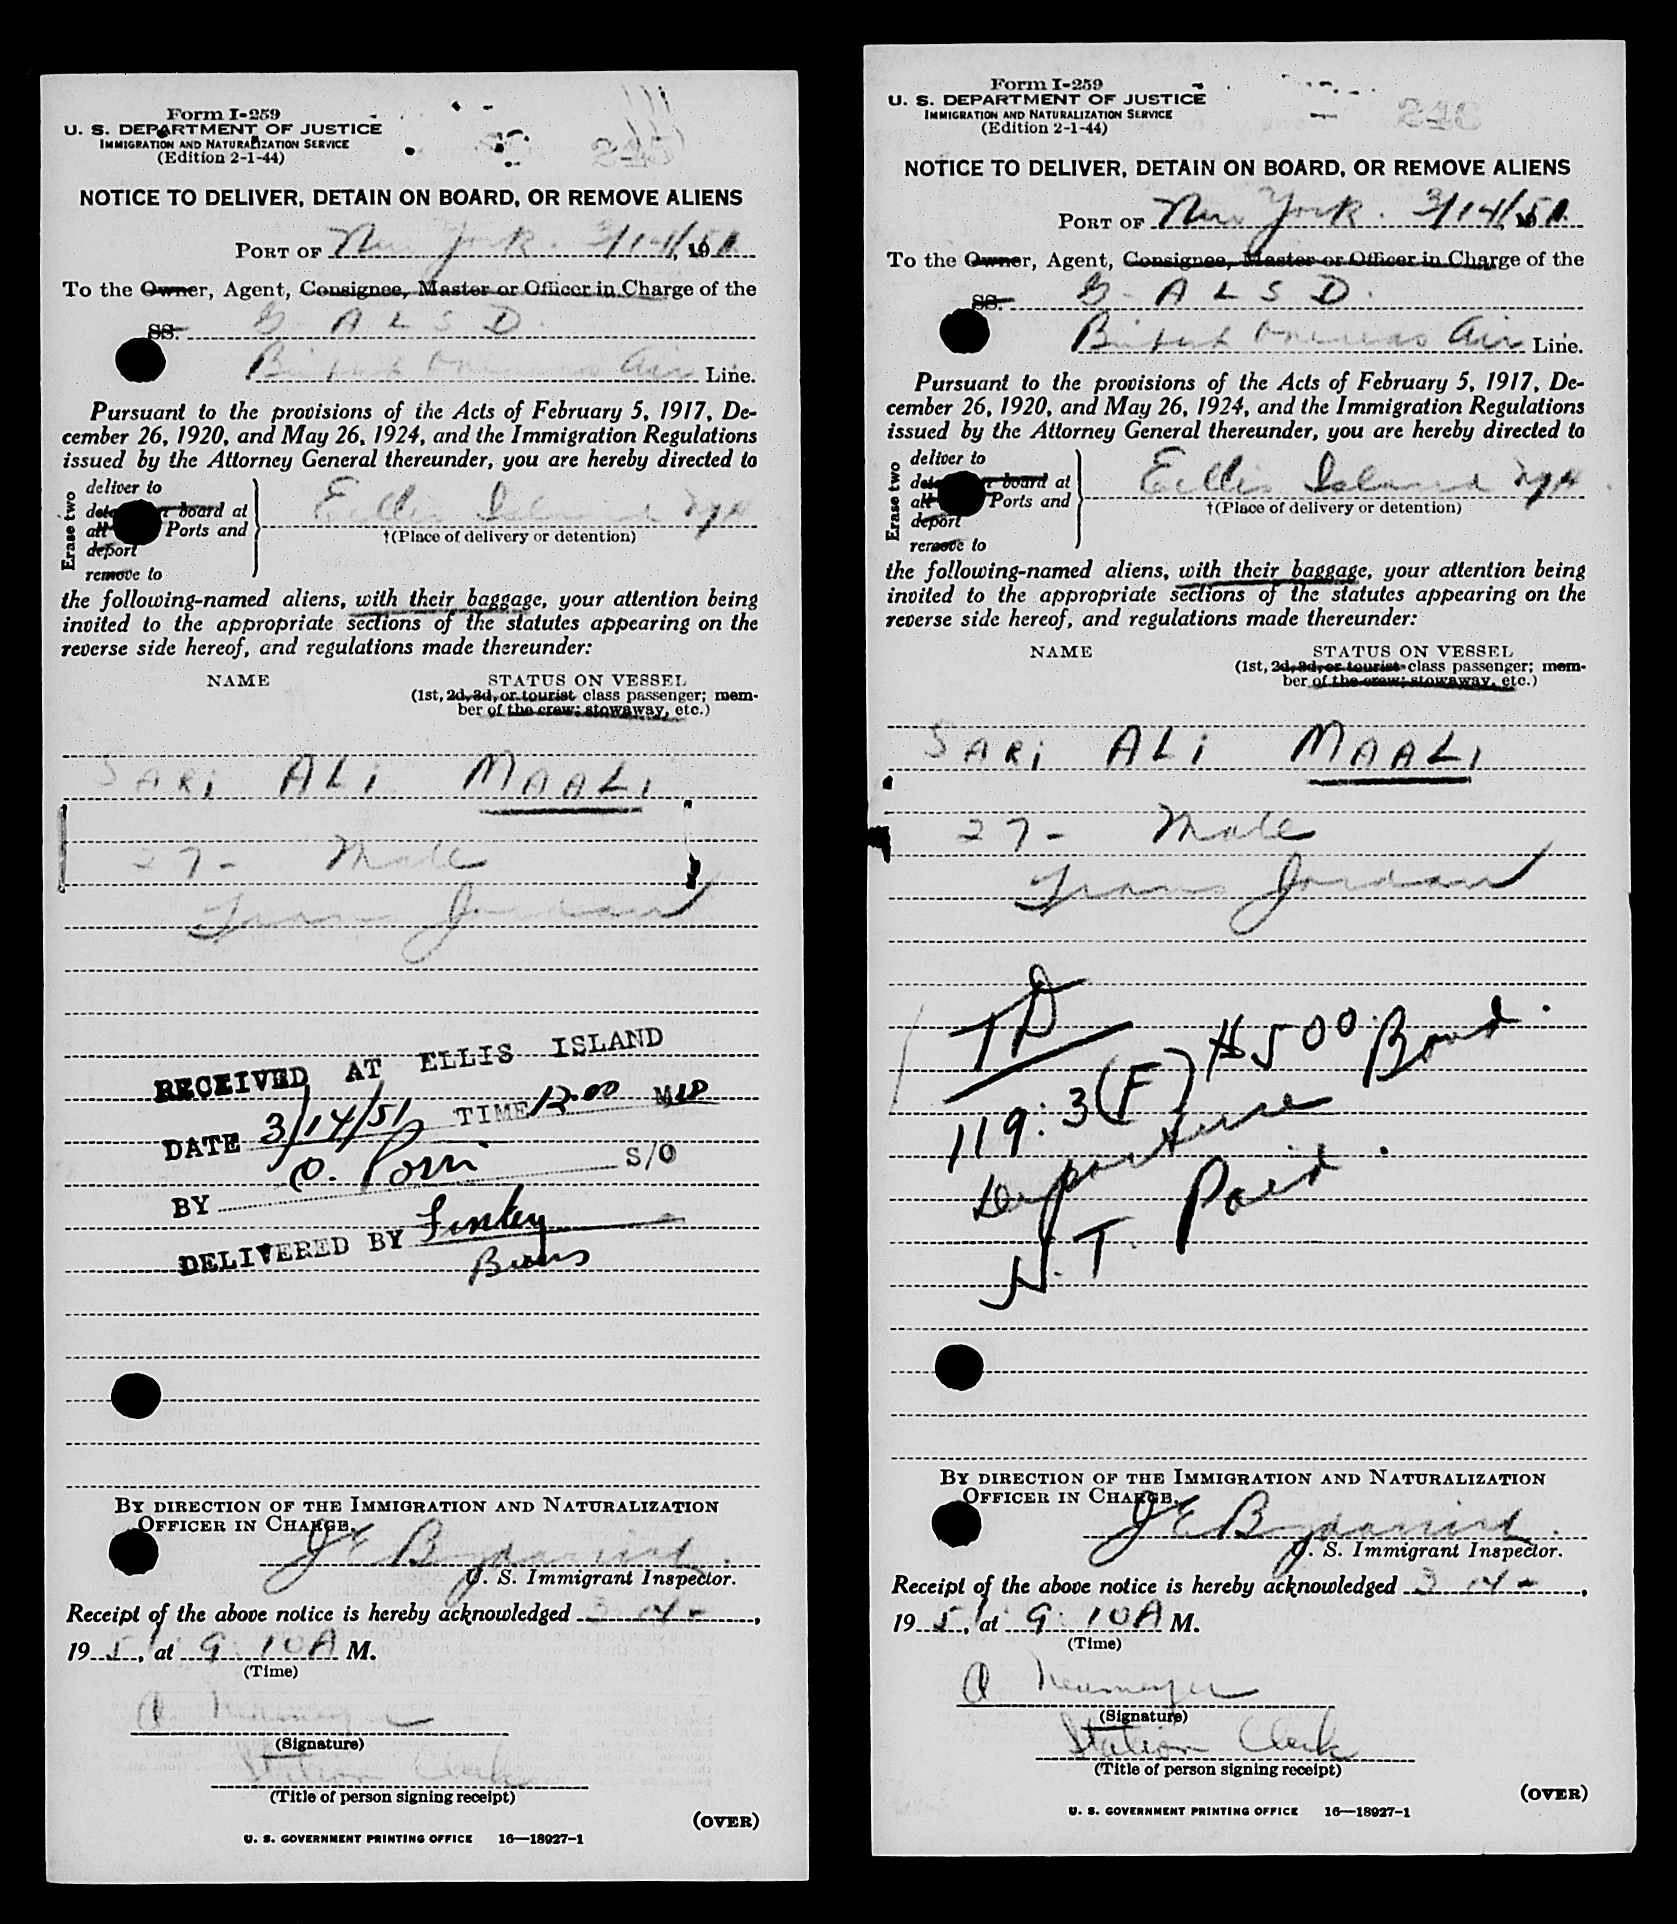 Form I-259
U. S. DEPARTMENT OF JUSTICE
IMMIGRATION AND NATURALIZATION SERVICE
(Edition 2-1-44)
NOTICE TO DELIVER, DETAIN ON BOARD, OR REMOVE ALIENS
PORT OF New York. 3/14/, 1951
To the Owner, Agent, Consignee, Master or Officer in Charge of the
SS. G-ALSD.
British Overseas Air Line.
Pursuant to the provisions of the Acts of February 5, 1917, De-
cember 26, 1920, and May 26, 1924, and the Immigration Regulations
issued by the Attorney General thereunder, you are hereby directed to
Erase two
deliver to
board at
all Ports and
deport
remove to
Ellis Island NYH
†(Place of delivery or detention)
the following-named aliens, with their baggage, your attention being
invited to the appropriate sections of the statutes appearing on the
reverse side hereof, and regulations made thereunder:
NAME STATUS ON VESSEL
(1st, 2d, 3d, or tourist class passenger; mem-
ber of the crew; stowaway, etc.)
SARI ALI MAALI
27 - Male
Trans Jordan
RECEIVED AT ELLIS ISLAND
DATE 3/14/51 TIME 12:00 M
BY O. S/O
DELIVERED BY
BY DIRECTION OF THE IMMIGRATION AND NATURALIZATION
OFFICER IN CHARGE.
J E
U. S. Immigrant Inspector.
Receipt of the above notice is hereby acknowledged 3 14 -,
1951, at 9:10 A M.
(Time)
A Neumeyer
(Signature)
Station Clerk
(Title of person signing receipt)
(OVER)
U. S. GOVERNMENT PRINTING OFFICE 16—18927-1
Form I-259
U. S. DEPARTMENT OF JUSTICE
IMMIGRATION AND NATURALIZATION SERVICE
(Edition 2-1-44)
NOTICE TO DELIVER, DETAIN ON BOARD, OR REMOVE ALIENS
PORT OF New York. 3/14/, 1951
To the Owner, Agent, Consignee, Master or Officer in Charge of the
SS. G-ALSD.
British Overseas Air Line.
Pursuant to the provisions of the Acts of February 5, 1917, De-
cember 26, 1920, and May 26, 1924, and the Immigration Regulations
issued by the Attorney General thereunder, you are hereby directed to
Erase two
deliver to
board at
all Ports and
deport
remove to
Ellis Island NYH
†(Place of delivery or detention)
the following-named aliens, with their baggage, your attention being
invited to the appropriate sections of the statutes appearing on the
reverse side hereof, and regulations made thereunder:
NAME STATUS ON VESSEL
(1st, 2d, 3d, or tourist class passenger; mem-
ber of the crew; stowaway, etc.)
SARI ALI MAALI
27 - Male
Trans Jordan
TD
119:3(F) $500 Bond.
Departure
H.T. Paid.
BY DIRECTION OF THE IMMIGRATION AND NATURALIZATION
OFFICER IN CHARGE.
J E
U. S. Immigrant Inspector.
Receipt of the above notice is hereby acknowledged 3 14 -,
1951, at 9:10 A M.
(Time)
A Neumeyer
(Signature)
Station Clerk
(Title of person signing receipt)
(OVER)
U. S. GOVERNMENT PRINTING OFFICE 16—18927-1